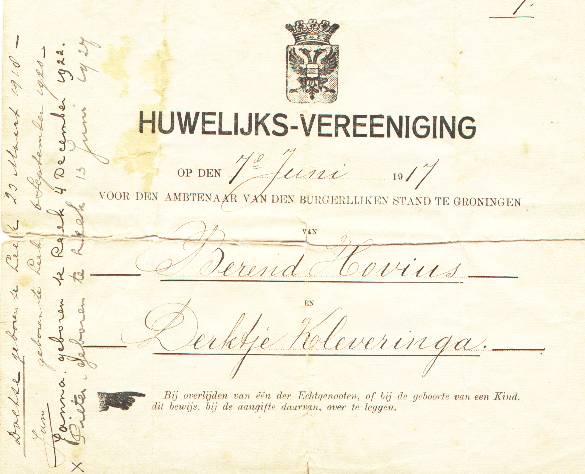 1.
HUWELIJKS-VEREENIGING
OP DEN 7e Juni 1917
VOOR DEN AMBTENAAR VAN DEN BURGERLIJKEN STAND TE GRONINGEN
VAN
Berend Hovius
EN
Derktje Koleveringa.
Bij overlijden van één der Echtgenooten, of bij de geboorte van een Kind,
dit bewijs, bij de aangifte daarvan, over te leggen.
geboren te Leek 23 Maart 1918 -
Jan geboren te Leek September 1920 -
Janna. geboren te Leek 4 December 1922.
X Pieter. geboren te Leek 13 Juni 1927